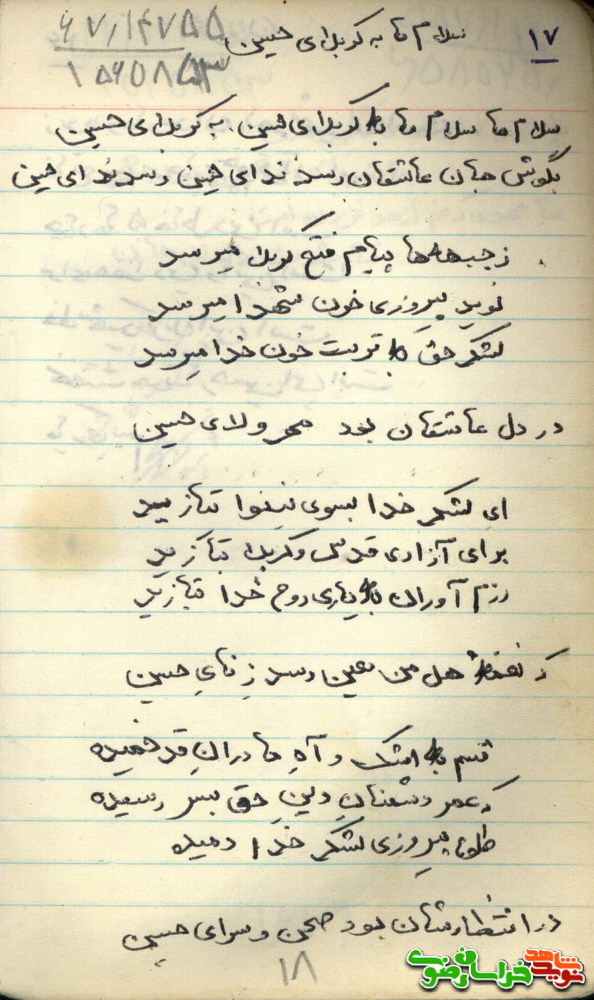 ۱۷
سلام ما به کربلای حسین
۶۷/۱۴۷۵۵
۱۵۶۰۸۵۳
سلام ما سلام ما به کربلای حسین، به کربلای حسین
بگوش جان عاشقان رسد ندای حسین رسد ندای حسین
ز جبهه‌ها پیام فتح کربلا میرسد
نوید پیروزی خون شهدا میرسد
لشکر حق به تربت خون خدا میرسد
در دل عاشقان بود مهر ولای حسین
ای لشکر خدا بسوی نینوا بتازید
برای آزادی قدس و کربلا بتازید
رزم آوران به یاری روح خدا بتازید
که نغمه هل من معین رسد ز نای حسین
قسم به اشک و آه مادران قد خمیده
که عمر دشمنان دین حق بسر رسیده
طلوع پیروزی لشکر خدا دمیده
در انتظارشان بود صحن و سرای حسین
۱۸
نوید شاهد
خراسان رضوی